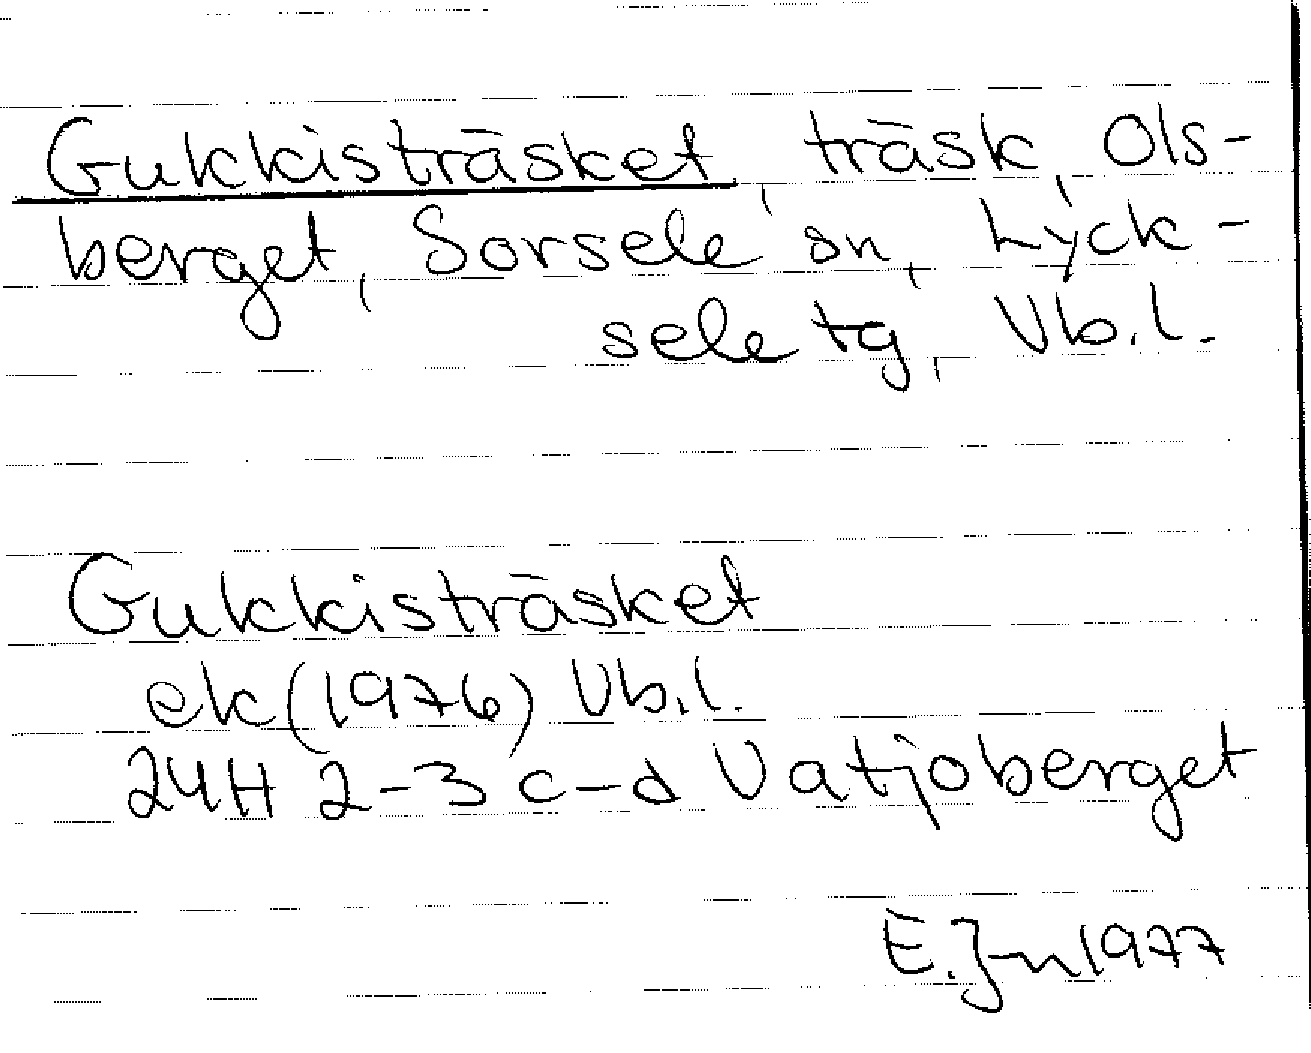 Gukkisträsket, träsk, Ols-
berget, Sorsele sn, Lyck-
sele tg, Vb.l.
Gukkisträsket
ek (1976) Vb.l.
24H 2-3 c-d Vatjoberget
E.J-n 1977